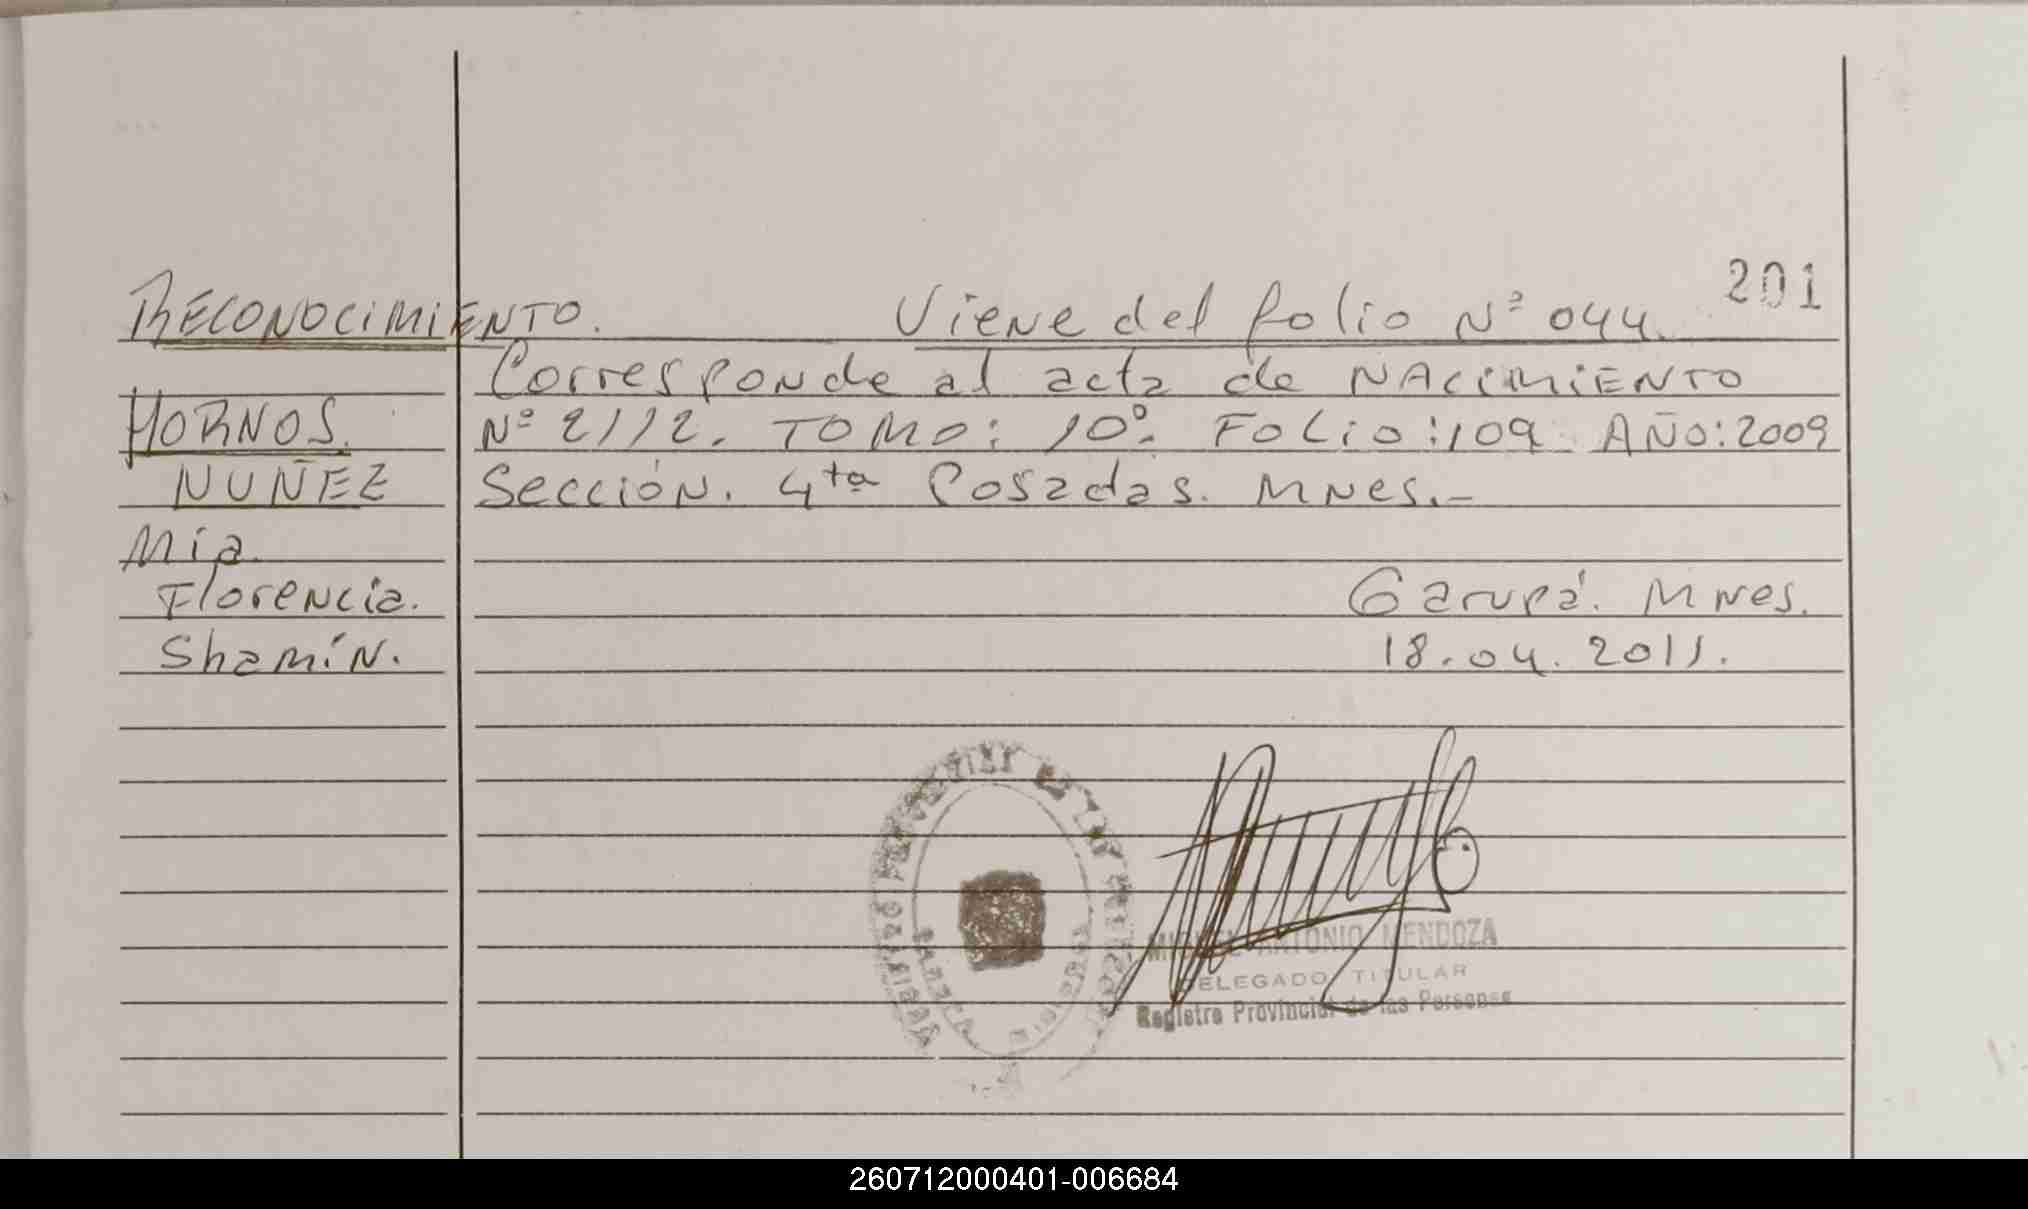 201
RECONOCIMIENTO. Viene del folio Nº 044.
Corresponde al acta de NACIMIENTO
HORNOS. Nº 2112. TOMO: 10º. FOLIO: 109. AÑO: 2009
NUÑEZ Sección. 4ta Posadas. MNes.-
Mia.
Florencia. Garupá. MNes.
Shamín. 18.04.2011.
MIGUEL ANTONIO MENDOZA
DELEGADO TITULAR
Registro Provincial de las Personas
260712000401-006684